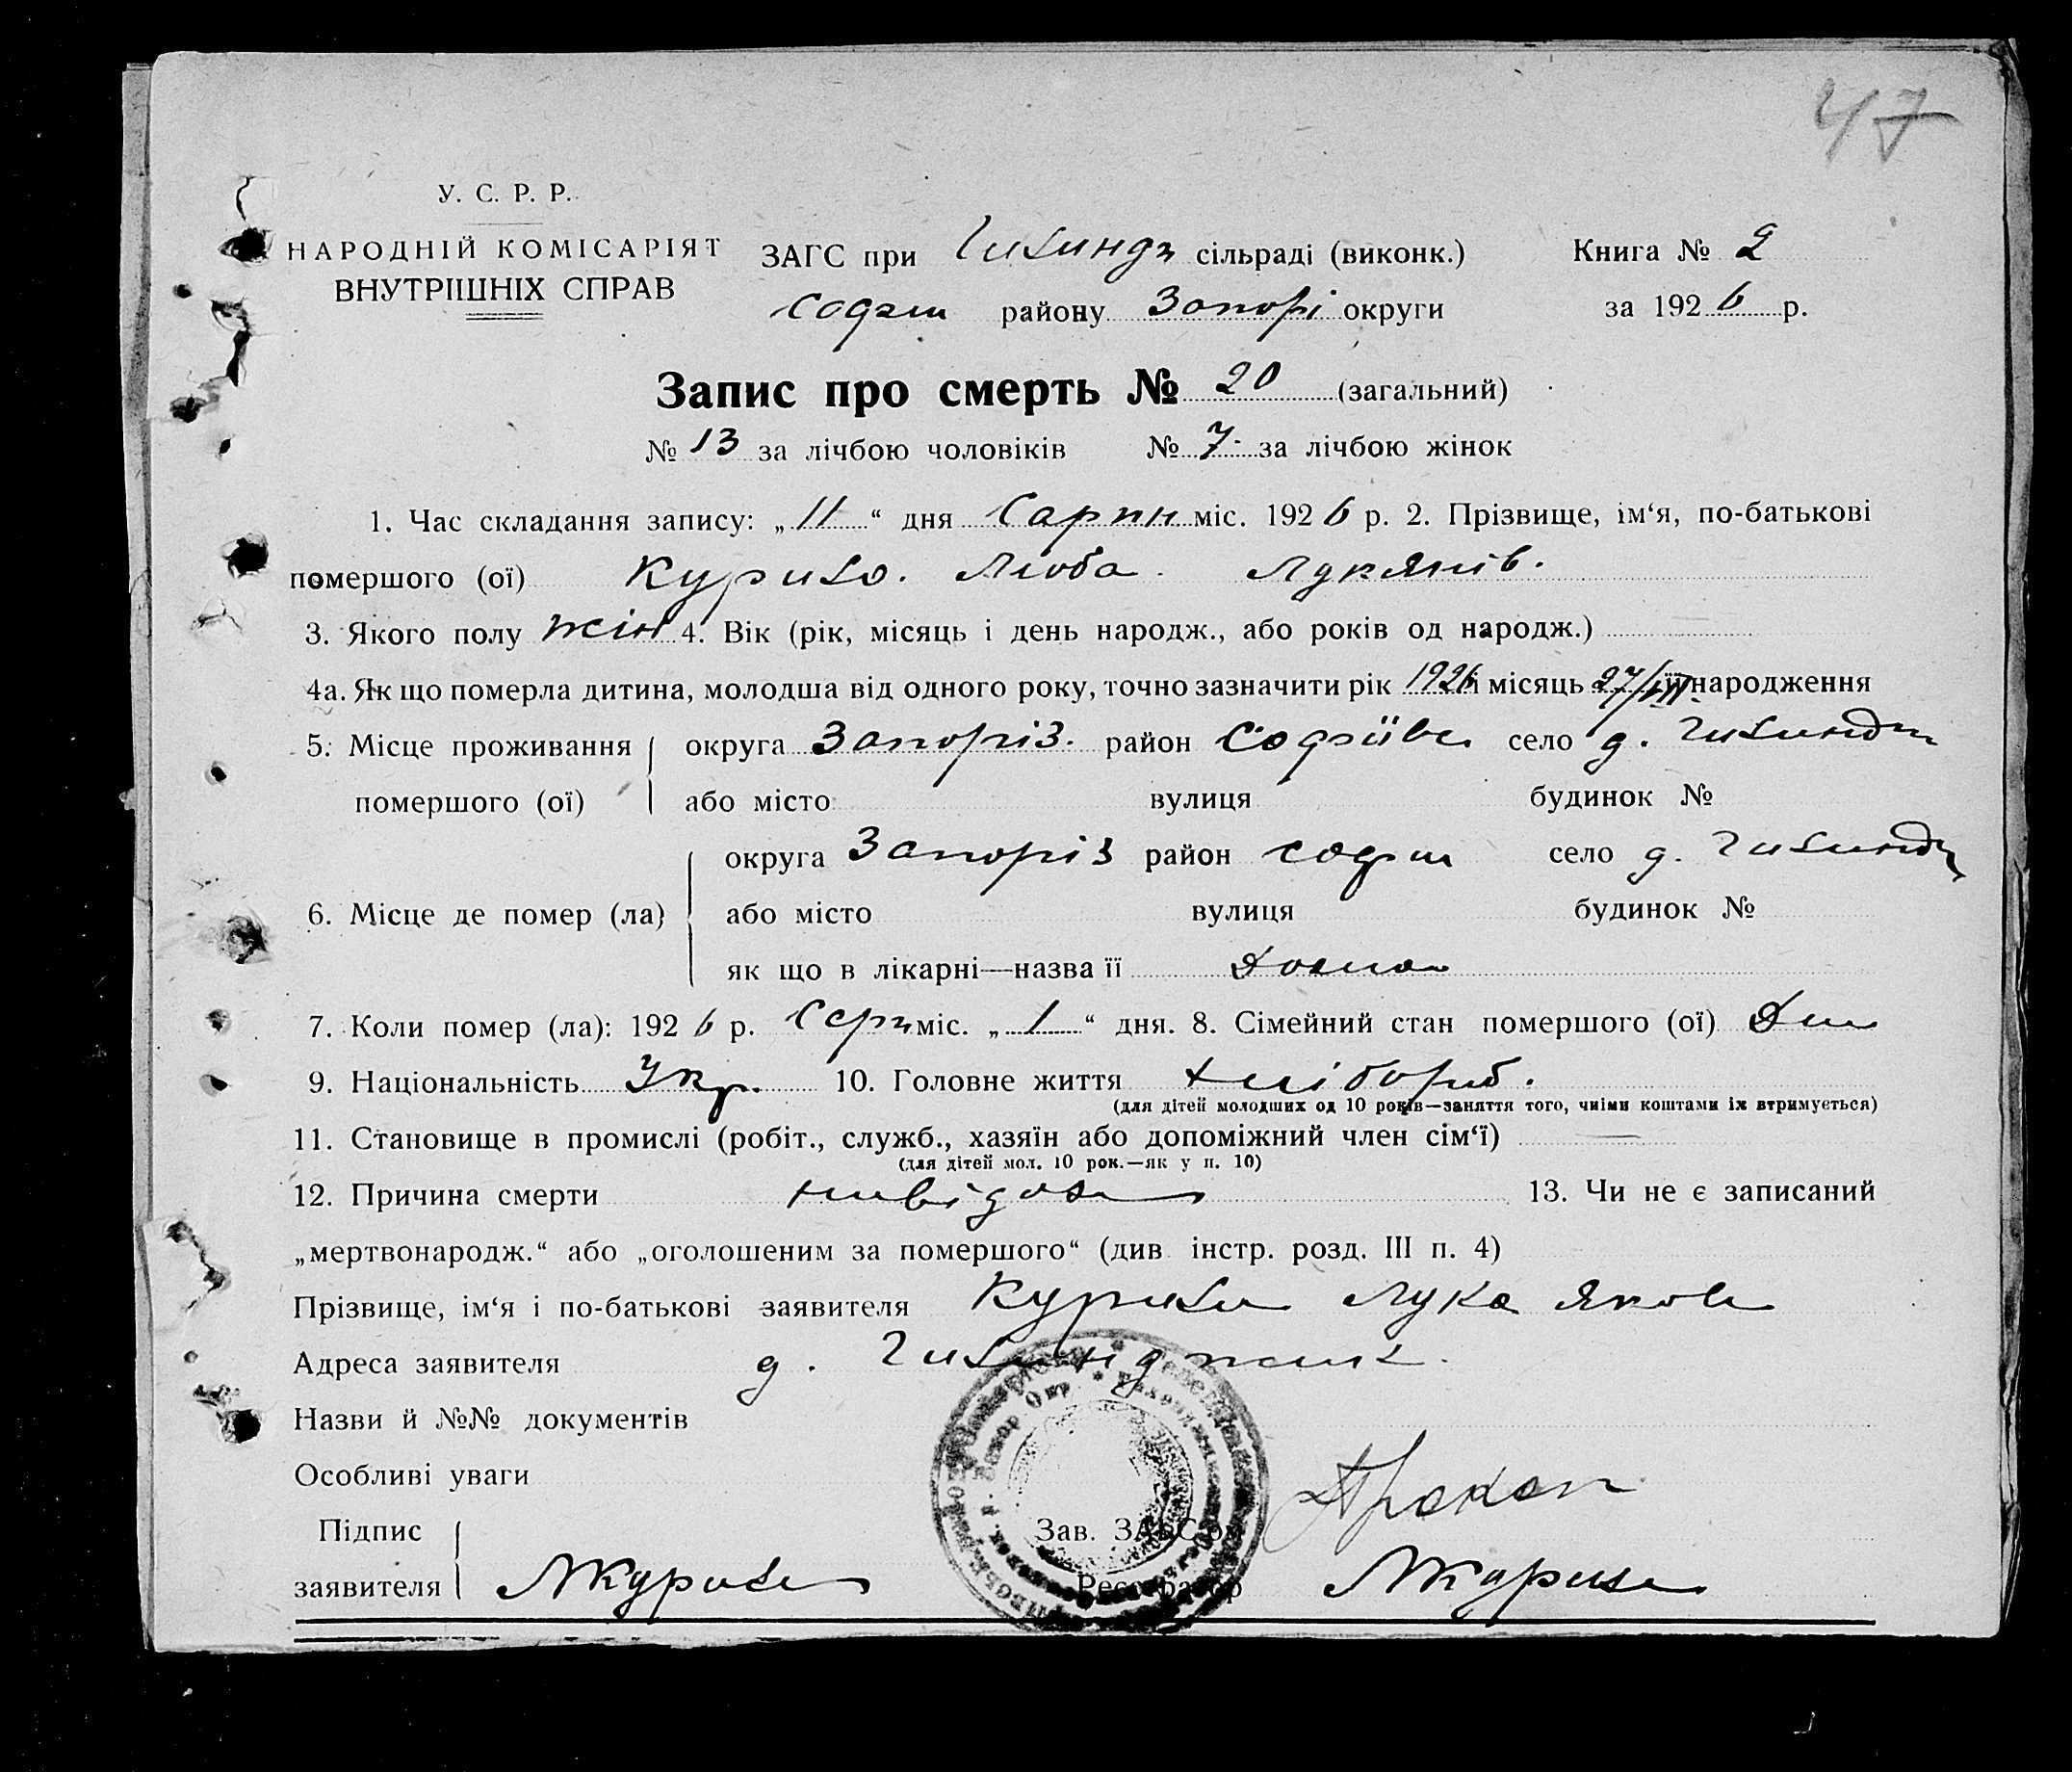 47
У. С. Р. Р.
НАРОДНІЙ КОМІСАРІЯТ
ВНУТРІШНІХ СПРАВ
ЗАГС при сільраді (виконк.)
району Запорі округи
Книга № 2
за 1926 р.
Запис про смерть № 20 (загальний)
№ 13 за лічбою чоловіків № 7 за лічбою жінок
1. Час складання запису: „11“ дня міс. 1926 р. 2. Прізвище, ім‘я, по-батькові
помершого (ої) Люба Лукянів.
3. Якого полу жін 4. Вік (рік, місяць і день народж., або років од народж.)
4а. Як що померла дитина, молодша від одного року, точно зазначити рік 1926 місяць 27/VII її народження
5. Місце проживання округа Запоріз. район село д.
помершого (ої) або місто вулиця будинок №
округа Запоріз район село д.
6. Місце де помер (ла) або місто вулиця будинок №
як що в лікарні—назва її Дома
7. Коли помер (ла): 1926 р. Серп міс. „1“ дня. 8. Сімейний стан помершого (ої)
9. Національність Укр. 10. Головне життя хліборб.
(для дітей молодших од 10 років—заняття того, чиїми коштами їх втримується)
11. Становище в промислі (робіт., служб., хазяїн або допоміжний член сім‘ї) —
(для дітей мол. 10 рок.—як у п. 10)
12. Причина смерти 13. Чи не є записаний
„мертвонародж.“ або „оголошеним за помершого“ (див. інстр. розд. III п. 4)
Прізвище, ім‘я і по-батькові заявителя Лука Яков
Адреса заявителя д.
Назви й №№ документів
Особливі уваги
Підпис
заявителя
Зав. ЗАГС‘ом
Реєстратор